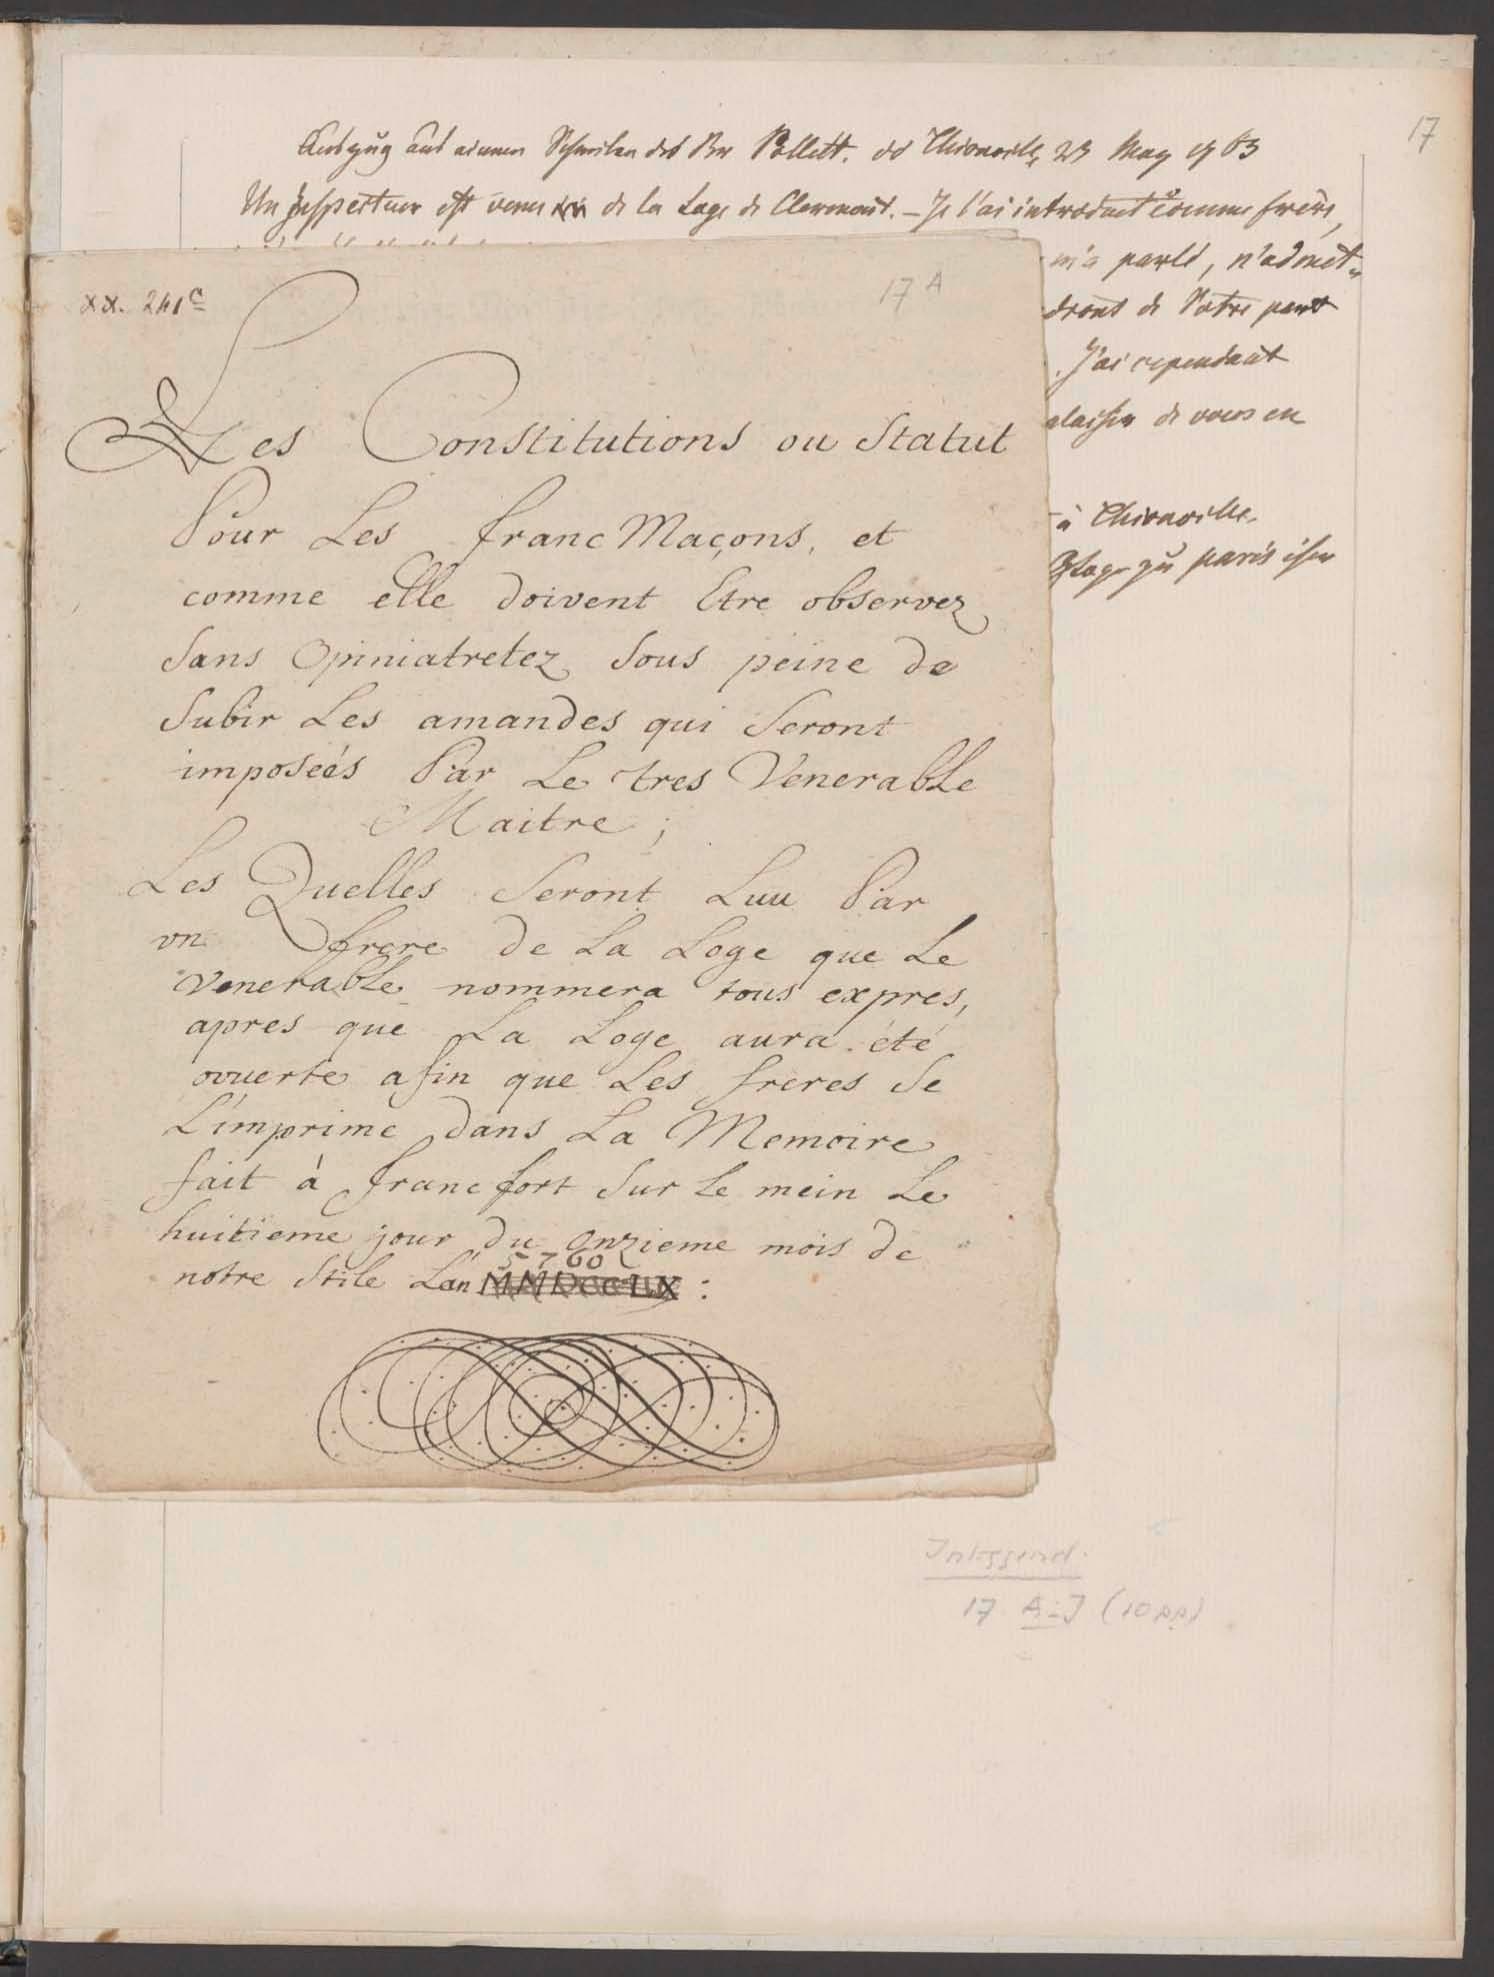 17
Auszug aus einem Schreiben des Br Pollett. dd Thionville 23 May 1763
Un Inspecteur est venu de la Loge de Clermont. – Je l'ai introduct comme frere,
m'a parlé, n'admet-
dront de Votre part
. J'ai cependant
plaisir de vous en
à Thionville.
Loge zu paris
xx. 241c
17 A
Les Constitutions ou Statut
Pour Les franc Maçons, et
comme elle doivent Etre observez
Sans Opiniatretez Sous peine de
Subir Les amandes qui Seront
imposeés Par Le tres Venerable
Maitre ;
Les Quelles Seront Luu Par
vn frere de La Loge que Le
Venerable nommera tous expres,
apres que La Loge aura été
ovuerte afin que Les freres Se
L'imprime dans La Memoire
fait à francfort Sur Le mein Le
huitieme jour du Onzieme mois de
5760
notre Stile L'an MMDCCLIX :
17 A-J (10 pp)